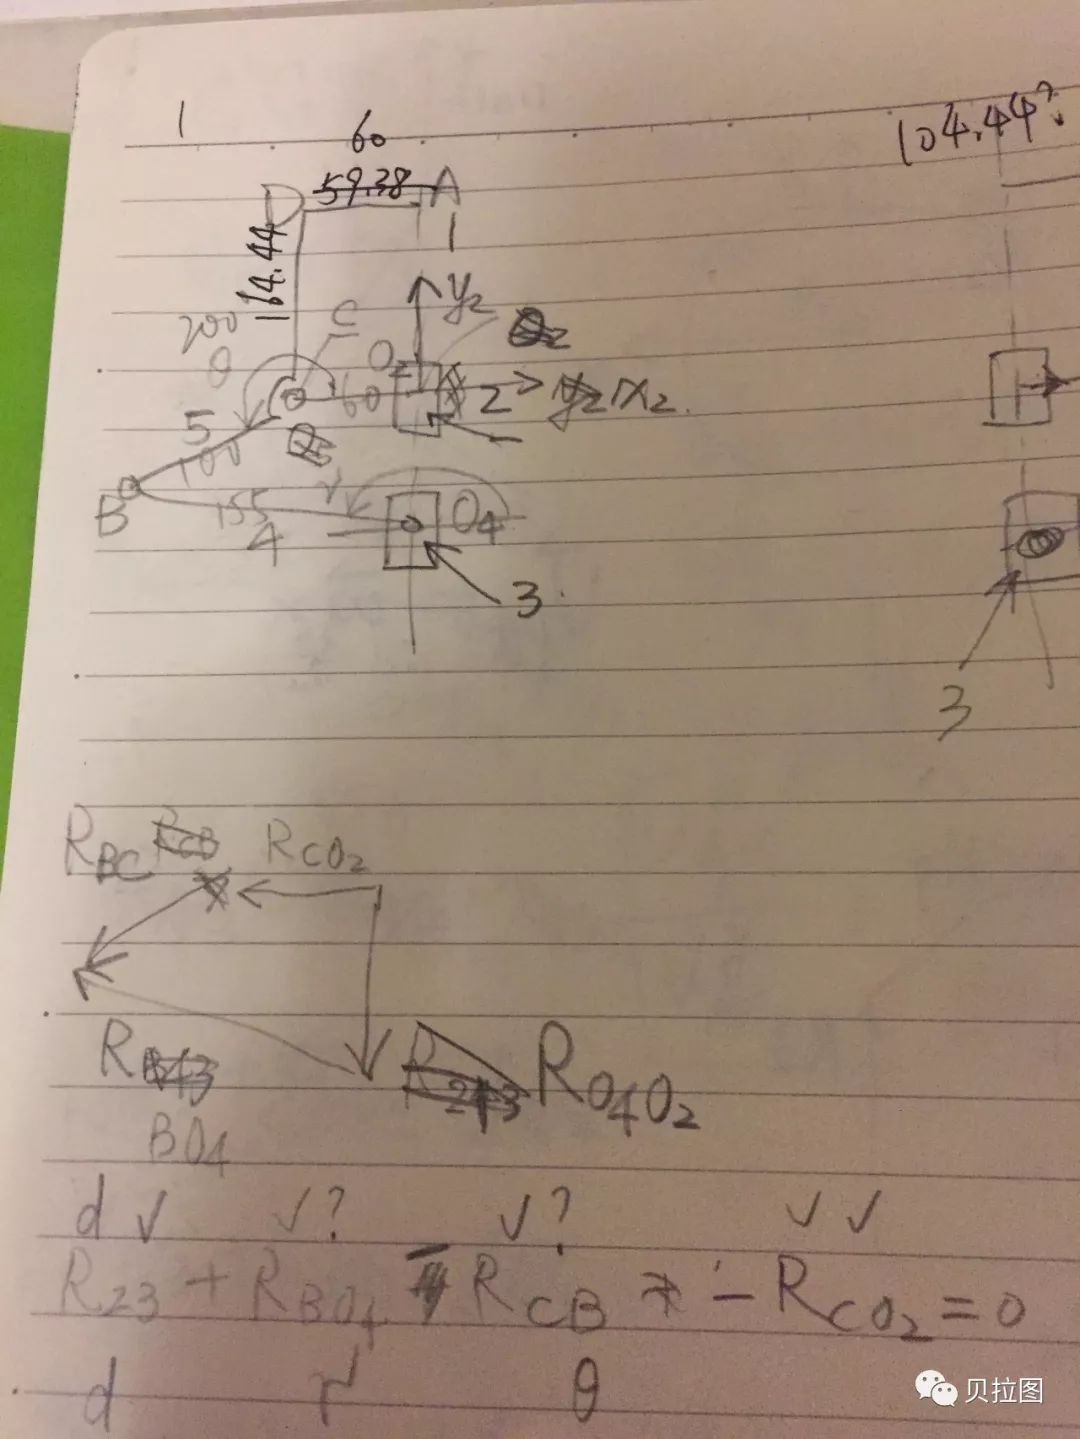 1
60
104.44?
59.38
D
A
1
164.44
y₂
200
θ
C
O₂
60
2
x₂
5
100
B
155
r
4
O₄
3
3
R_BC
R_CB
R_CO₂
R
BO₄
R_O₄O₂
d ✓ ✓? ✓? ✓✓
R₂₃ + R_BO₄ - R_CB - R_CO₂ = 0
d r θ
贝拉图